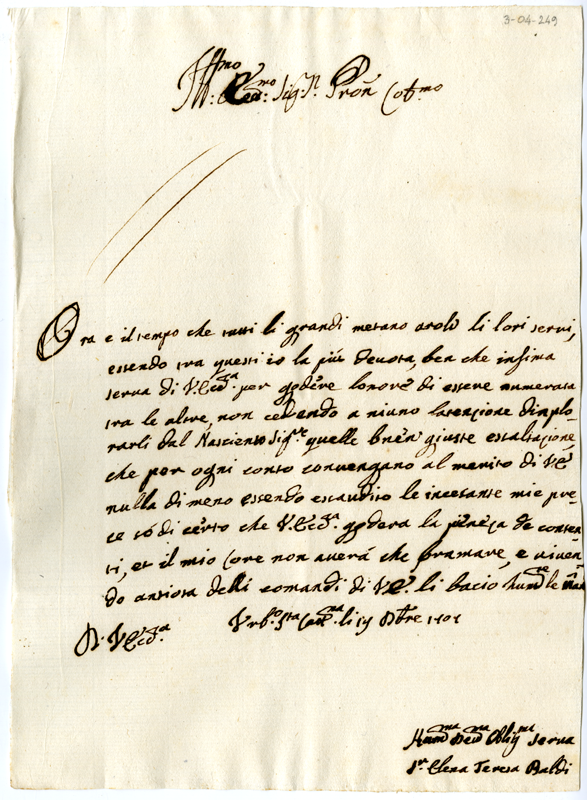 3-04-249
Ill:mo Ecc:mo Sig:r Pron Coll:mo
Ora e il tempo che tutti li grandi metano arolo li lori servi,
essendo tra questi io la più devota, ben che infima
serva di V. Ecc:a per godere lonore di essere numerata
tra le altre, non cedendo a niuno latenzione dinplo-
rarli dal Nasciento Sig:re quelle bnēn giuste esaltazione
che per ogni conto convengano al merito di VE
nulla di meno essendo esaudito le incesante mie pre-
ce sò di certo che V. Ecc:a godera la di conten-
ti, et il mio Core non averá che bramare, e viven-
do ansiosa delli comandi di VE. li bacio hum:te le
D. V. Ecc:a Urb:o S:ta Cat:na li 19 Dbre
Hum:ma Dev:ma Oblig:ma Serva
S:r Elena Teresa Baldi